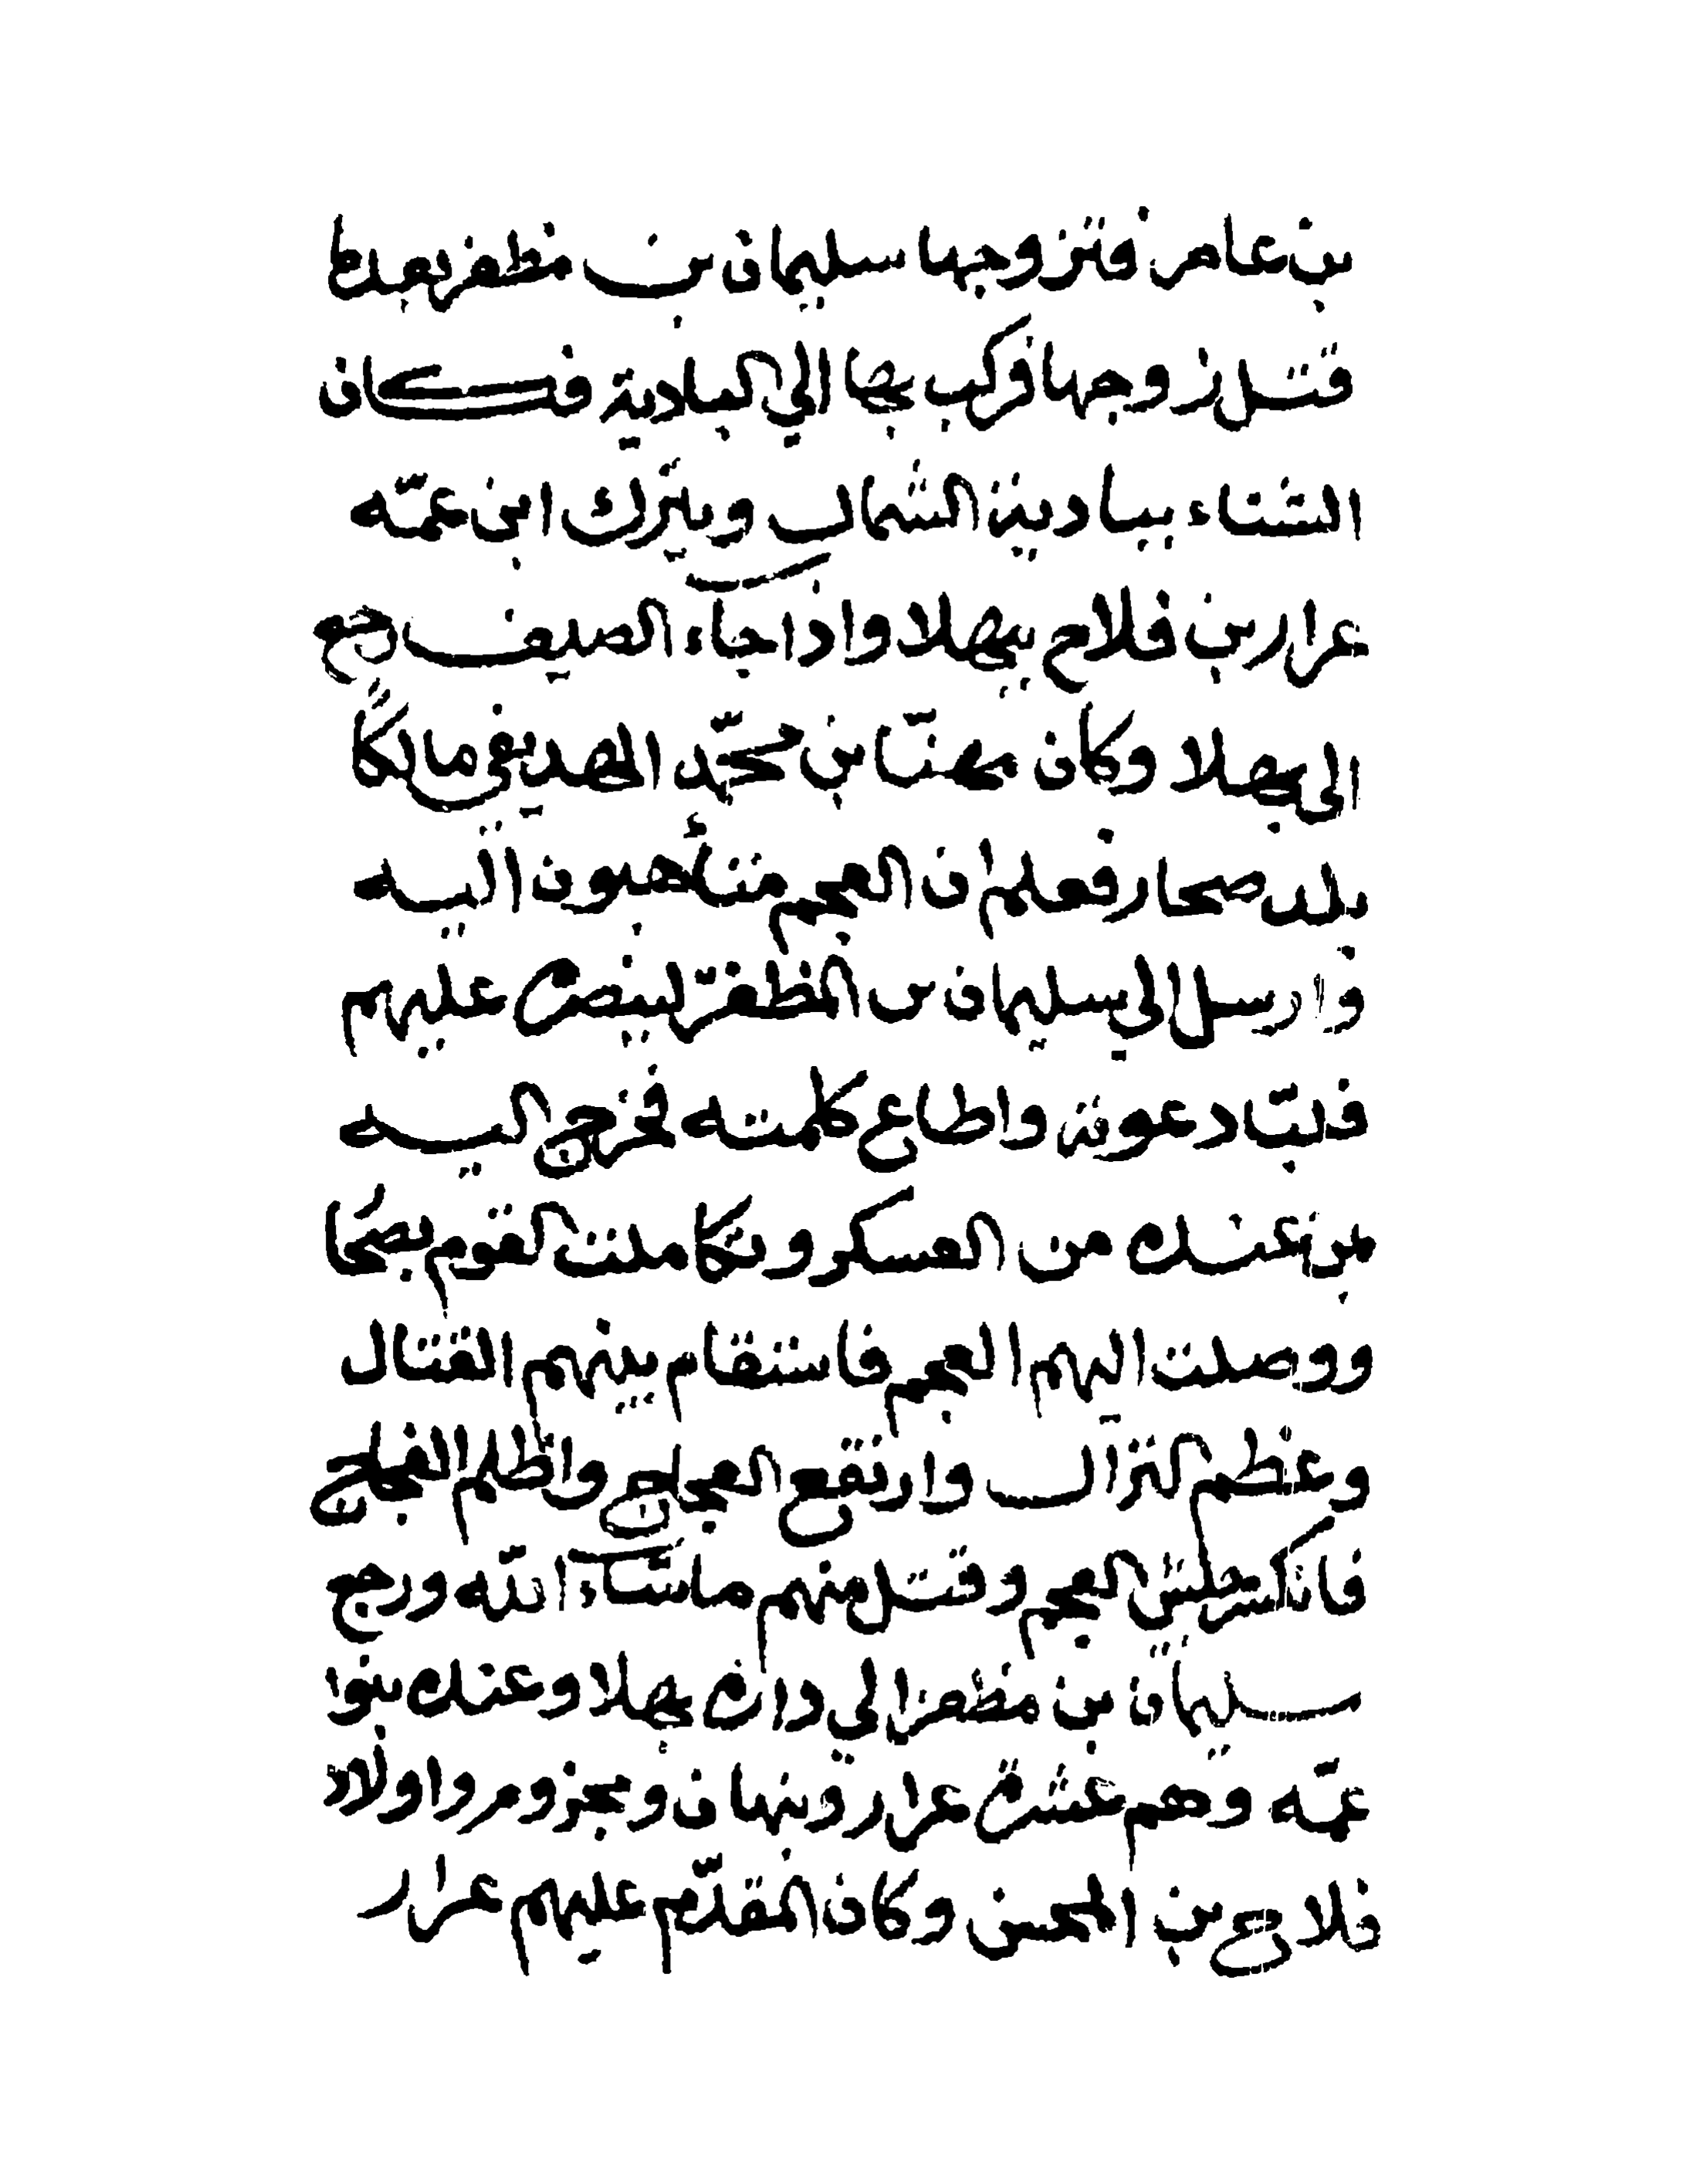 بن عامر فتزوجها سليمان بن مظفر بعد ما
قتل زوجها فركب بها الي البادية فكان
الشتاء ببادية الشمال ويترك ابن عمّه
عرار بن فلاح ببهلا واذا جاء الصيف رجع
الى بهلا وكان مهنّا بن محمّد الهديفي مالكًا
بلد صحار فعلم ان العجم متأهبون اليه
وارسل الي سليمان بن المظفر لينصره عليهم
فلبّا دعوته واطاع كلمته فخرج اليه
بمن عنده من العسكر وتكاملت القوم بصحا
ووصلت اليهم العجم فاستقام بينهم القتال
وعظم النزال وارتفع العجاج واظلم الفجاج
فانكسر جيش العجم وقتل منهم ماشآء الله ورجع
سليمان بن مظفر الي داره بهلا وعنده بنوا
عمّه وهم عشرة عرار ونبهان ومخزوم واولاد
فلاح بن المحسن وكان المقدّم عليهم عرار